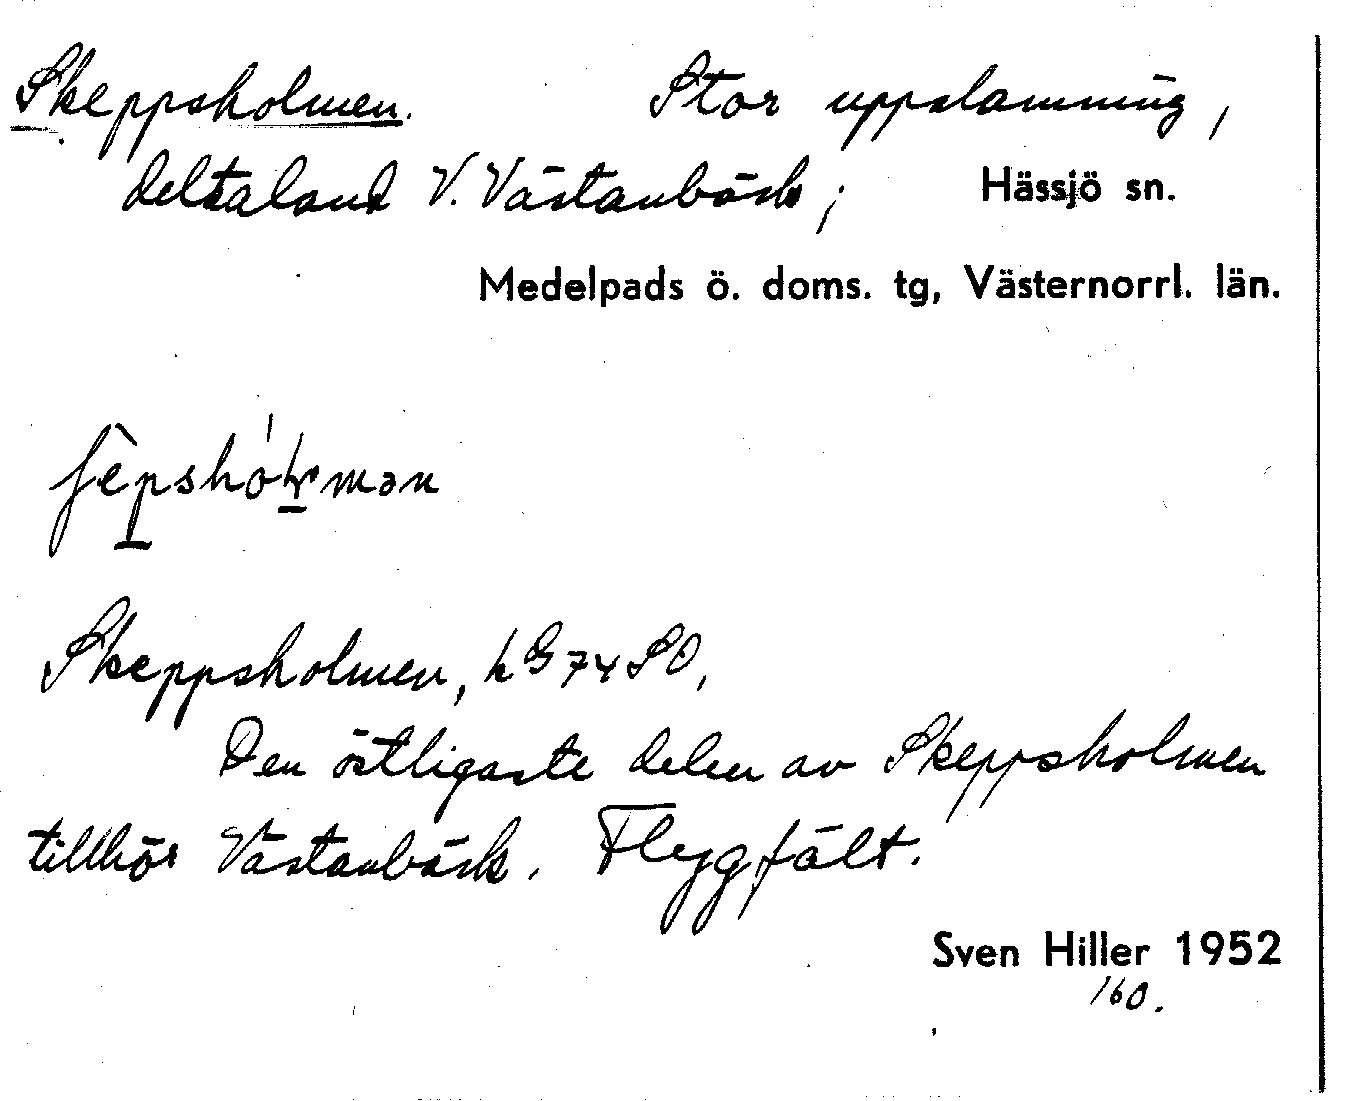 Skeppsholmen. Stor uppslamning,
deltaland V. Västanbäck; Hässjö sn.
Medelpads ö. doms. tg, Västernorrl. län.
Skeppsholmen, h G 74 SO,
Den östligaste delen av Skeppsholmen
tillhör Västanbäck. Flygfält.
Sven Hiller 1952
160.